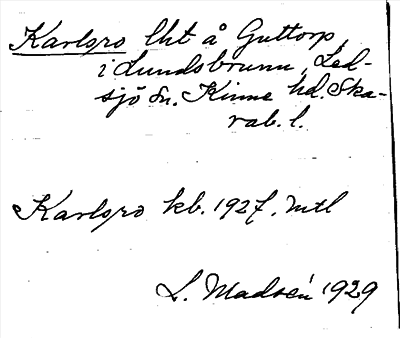 Karlsro lht å Guttorp,
i Lundsbrunn, Led-
sjö sn. Kinne hd. Ska-
rab. l.
Karlsro kb. 1927. mtl
L. Madsén 1929